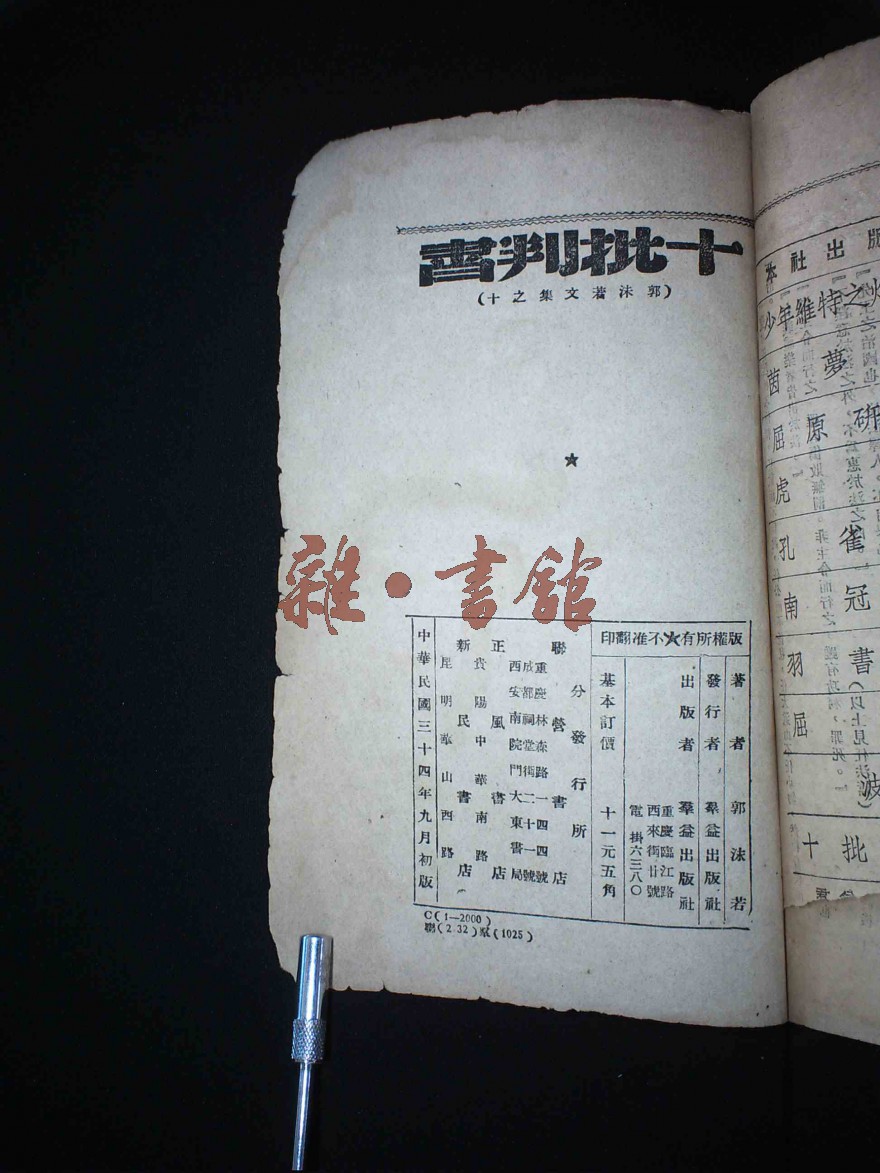 十批判書
(郭沫若文集之十)
★
版權所有★不准翻印
著者 郭沫若
發行者 羣益出版社
出版者 羣益出版社
重慶臨江路
西來街廿號
電掛六三八〇
基本訂價 十一元五角
分發行所
聯營書店
重慶林森路一四四號
成都祠堂街二十一號
西安南院門大東書局
正風書店
貴陽中華南路
新民書店
昆明華山西路
中華民國三十四年九月初版
C(1—2000)
聯(2 32)
(1025)
本社出版
少年維特之
茵夢
屈原研
虎
孔雀
南冠
羽書
屈
波
十批
雜·書館